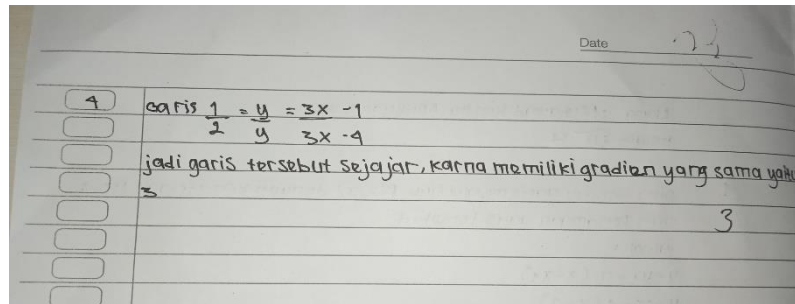 Date
4 Garis 1/2 = y/y = 3x/3x -1/-4
jadi garis tersebut sejajar, karna memiliki gradien yang sama yaitu
3
3